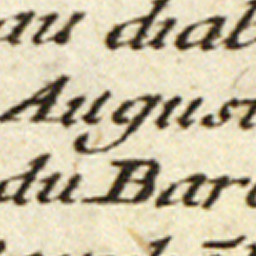 au dial
August
du Bar